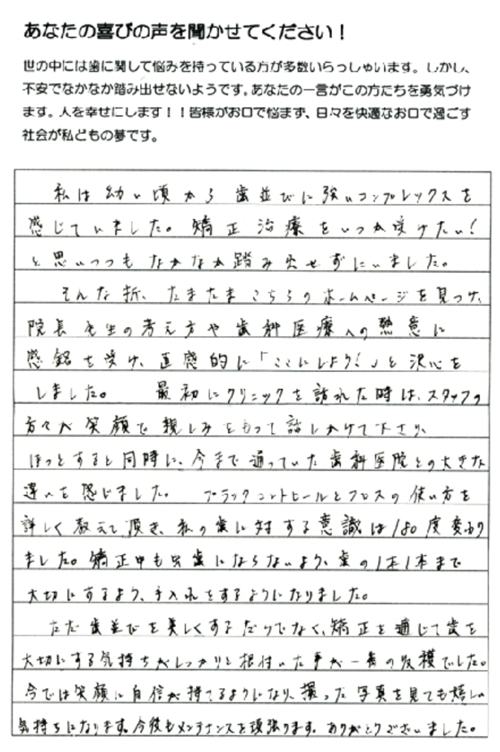 あなたの喜びの声を聞かせてください！
世の中には歯に関して悩みを持っている方が多数いらっしゃいます。しかし、
不安でなかなか踏み出せないようです。あなたの一言がこの方たちを勇気づけ
ます。人を幸せにします！！皆様がお口で悩まず、日々を快適なお口で過ごす
社会が私どもの夢です。
私は幼い頃から歯並びに強いコンプレックスを
感じていました。矯正治療をいつか受けたい！
と思いつつもなかなか踏み出せずにいました。
そんな折、たまたまこちらのホームページを見つけ、
院長先生の考え方や歯科医療への熱意に
感銘を受け、直感的に「ここにしよう！」と決心を
しました。 最初にクリニックを訪れた時は、スタッフの
方々が笑顔で親しみをもって話しかけて下さり、
ほっとすると同時に、今まで通っていた歯科医院との大きな
違いを感じました。 プラックコントロールとフロスの使い方を
詳しく教えて頂き、私の歯に対する意識は180度変わり
ました。矯正中も虫歯にならないよう、歯の1本1本まで
大切にするよう、手入れをするようになりました。
ただ歯並びを美しくするだけでなく、矯正を通じて歯を
大切にする気持ちがしっかりと根付いた事が一番の収穫でした。
今では笑顔に自信が持てるようになり、撮った写真を見ても嬉しい
気持ちになります。今後もメンテナンスを頑張ります。ありがとうございました。